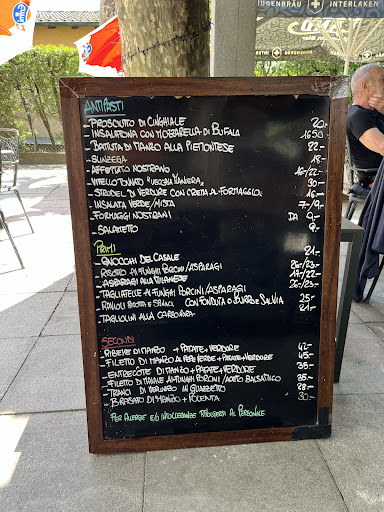 RUGENBRÄU
INTERLAKEN
ANTIPASTI
- PROSCIUTTO DI CINGHIALE 20.-
- INSALATONA CON MOZZARELLA DI BUFALA 16.50
- BATTUTA DI MANZO ALLA PIEMONTESE 22.-
18.-
- AFFETTATO NOSTRANO 16.-/22.-
- VITELLO TONNATO "VECCHIA MANIERA" 30.-
- STRUDEL DI VERDURE CON CREMA AL FORMAGGIO 16.-
- INSALATA VERDE/MISTA 7.-/9.-
- FORMAGGI NOSTRANI DA 9.-
- SALAMETTO 9.-
PRIMI
- GNOCCHI DEL CASALE 21.-
- RISOTTO AI FUNGHI PORCINI/ASPARAGI 20.-/23.-
- ASPARAGI ALLA MILANESE 17.-/22.-
- TAGLIATELLE AI FUNGHI PORCINI/ASPARAGI 20.-/23.-
- RAVIOLI RICOTTA E SPINACI CON FONDUTA O BURRO E SALVIA 25.-
- TAGLIOLINI ALLA CARBONARA 21.-
SECONDI
- RIBEYE DI MANZO + PATATE + VERDURE 42.-
- FILETTO DI MANZO AL PEPE VERDE + PATATE + VERDURE 45.-
- ENTRECÔTE DI MANZO + PATATE + VERDURE 35.-
- FILETTO DI MAIALE AI FUNGHI PORCINI / ACETO BALSAMICO 35.-
- TRANCI DI MERLUZZO IN GUAZZETTO 28.-
- BRASATO DI MANZO + POLENTA 30.-
PER ALLERGIE E/O INTOLLERANZE RIVOLGERSI AL PERSONALE